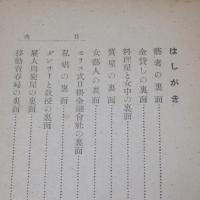 はしがき
藝者の裏面
金貸しの裏面
料理屋と女中の裏面
質屋の裏面
女藝人の裏面
モリス式日掛金融會社の裏面
私娼の裏面
ダンサーと教授の裏面
雇人周旋屋の裏面
移動賣春婦の裏面